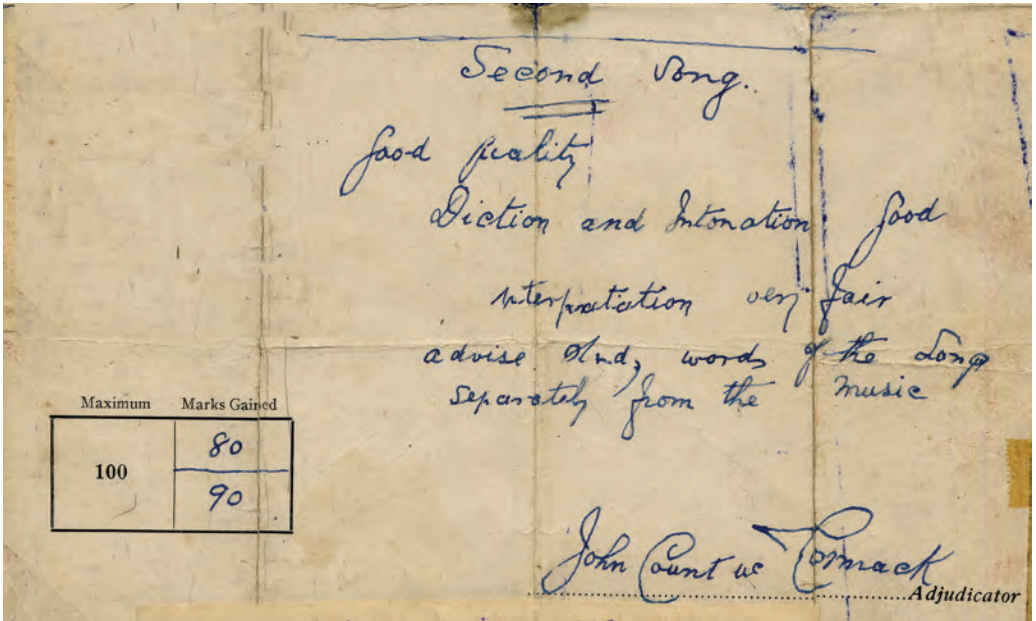 Second Song.
Good quality
Diction and Intonation Good
nterpratation very fair
advise study words of the song
separately from the music
Maximum Marks Gained
80
100
90
John Count Mc Cormack
Adjudicator